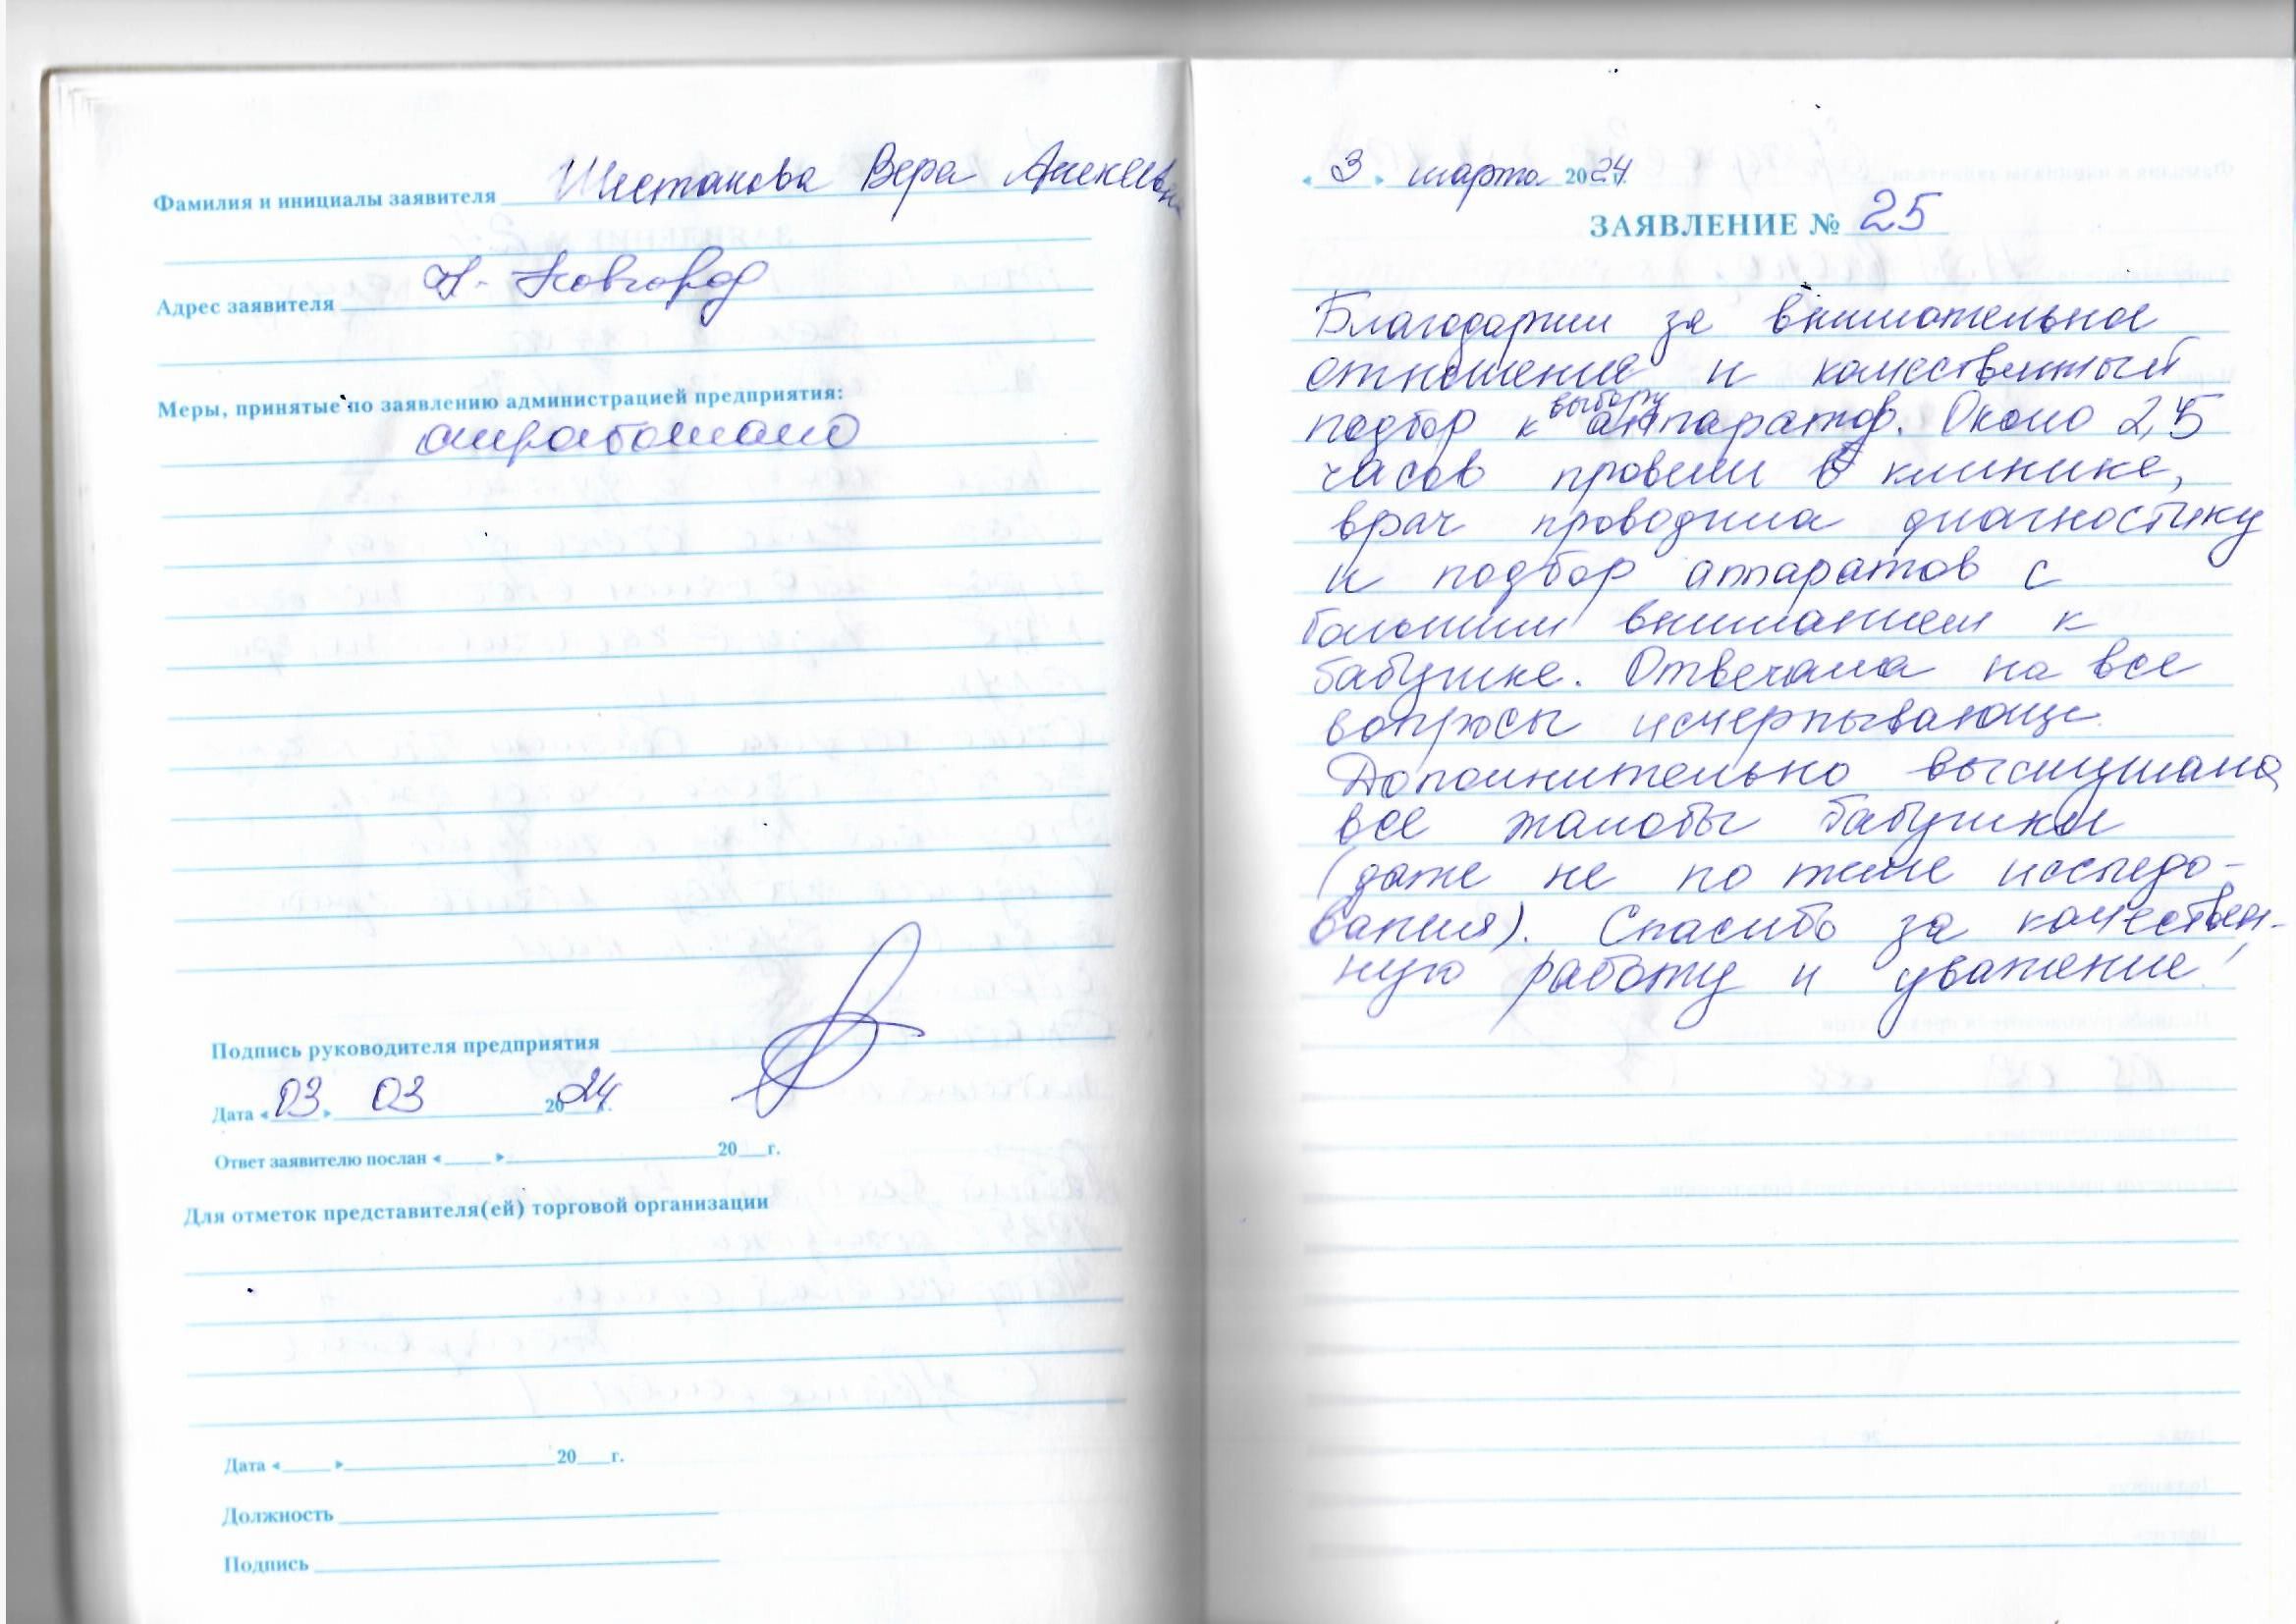 Фамилия и инициалы заявителя Шестакова Вера Алексеевн
Адрес заявителя Н. Новгород
Меры, принятые по заявлению администрацией предприятия:
отработано
Подпись руководителя предприятия
Дата «03» 03 2024г.
Ответ заявителю послан «____» ____ 20__г.
Для отметок представителя(ей) торговой организации
Дата «____» ____ 20__г.
Должность
Подпись
«3» марта 2024г.
ЗАЯВЛЕНИЕ № 25
Благодарим за внимательное
отношение и качественный
выбору
подбор к аппаратов. Около 2,5
часов провели в клинике,
врач проводила диагностику
и подбор аппаратов с
большим вниманием к
бабушке. Отвечала на все
вопросы исчерпывающе.
Дополнительно выслушала
все жалобы бабушки
(даже не по теме исследо-
вания). Спасибо за качествен-
ную работу и уважение!